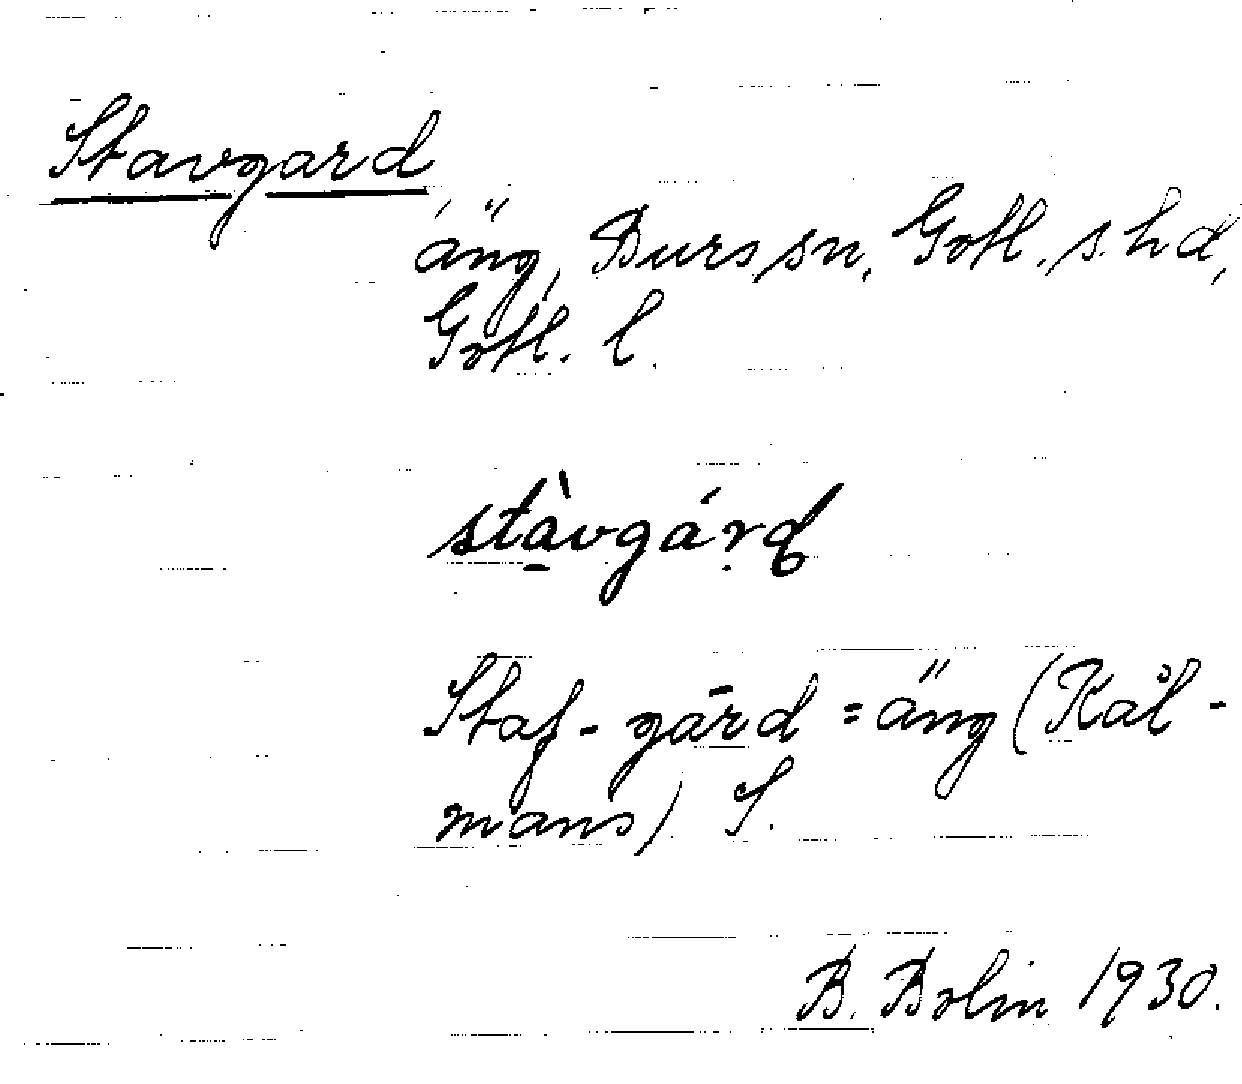 Stavgard
äng, Burs sn, Gotl. s. hd,
Gotl. l.
stàvgárd
Staf-gārd = äng (Kål-
mans) S.
B. Bolin 1930.